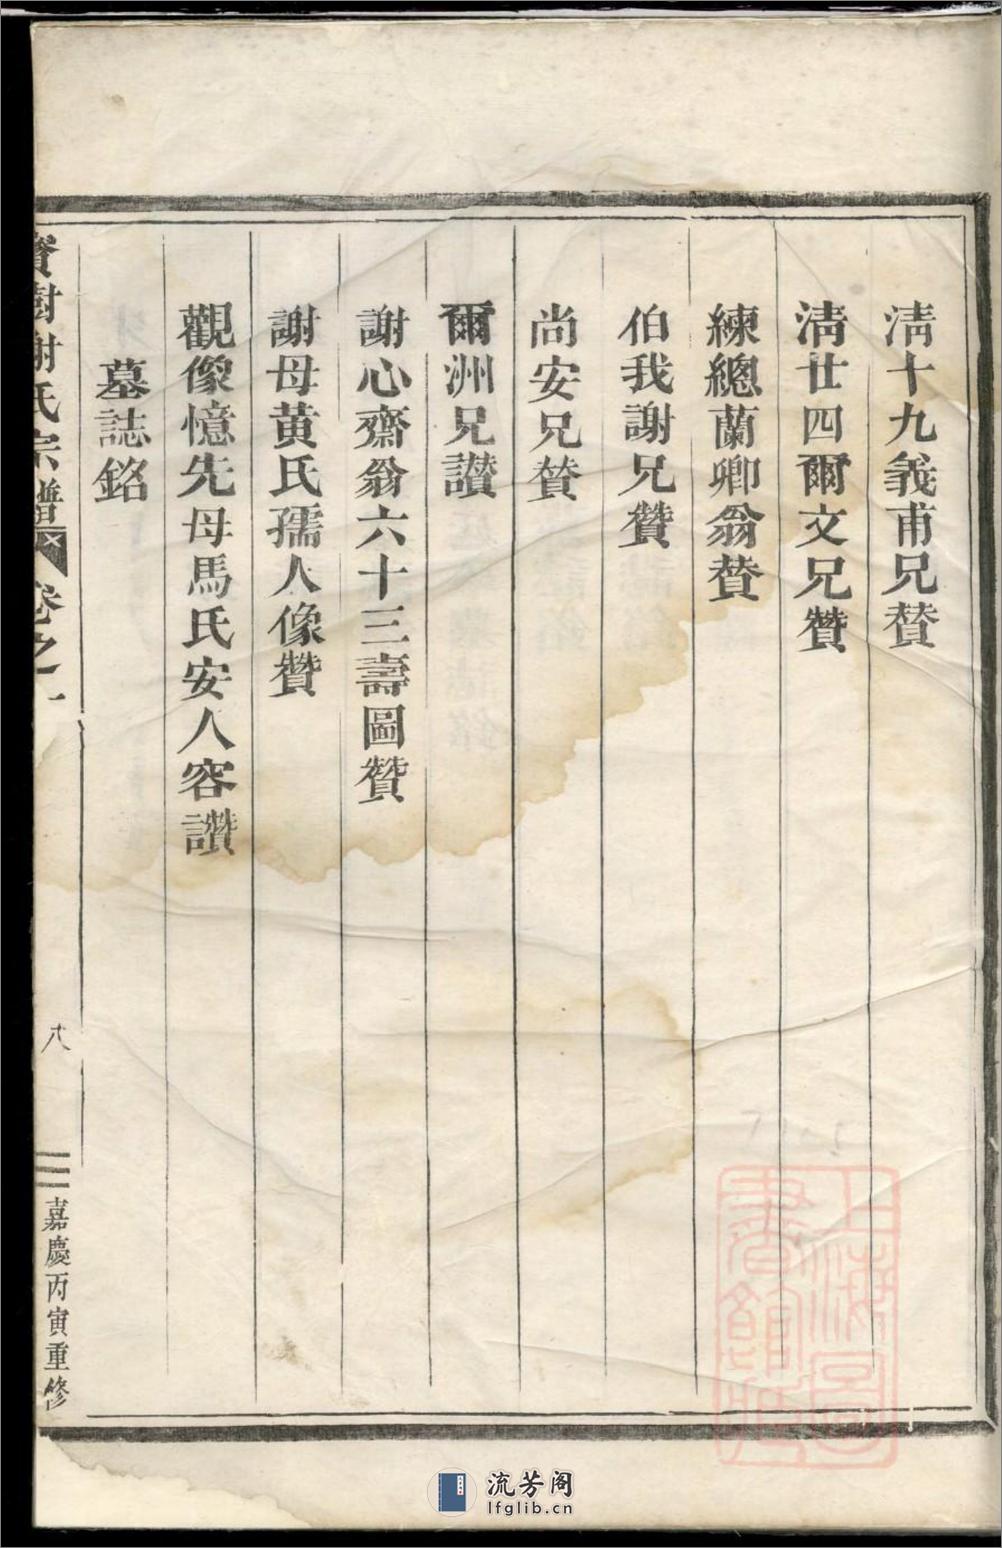 淸十九義甫兄賛
淸廿四爾文兄贊
練總蘭卿翁賛
伯我謝兄贊
尚安兄賛
爾洲兄讃
謝心齋翁六十三壽圖贊
謝母黄氏孺人像贊
觀像憶先母馬氏安人容讚
墓誌銘
寳樹謝氏宗譜
卷之一
八
嘉慶丙寅重修
上海圖書館藏
流芳阁
lfglib.cn